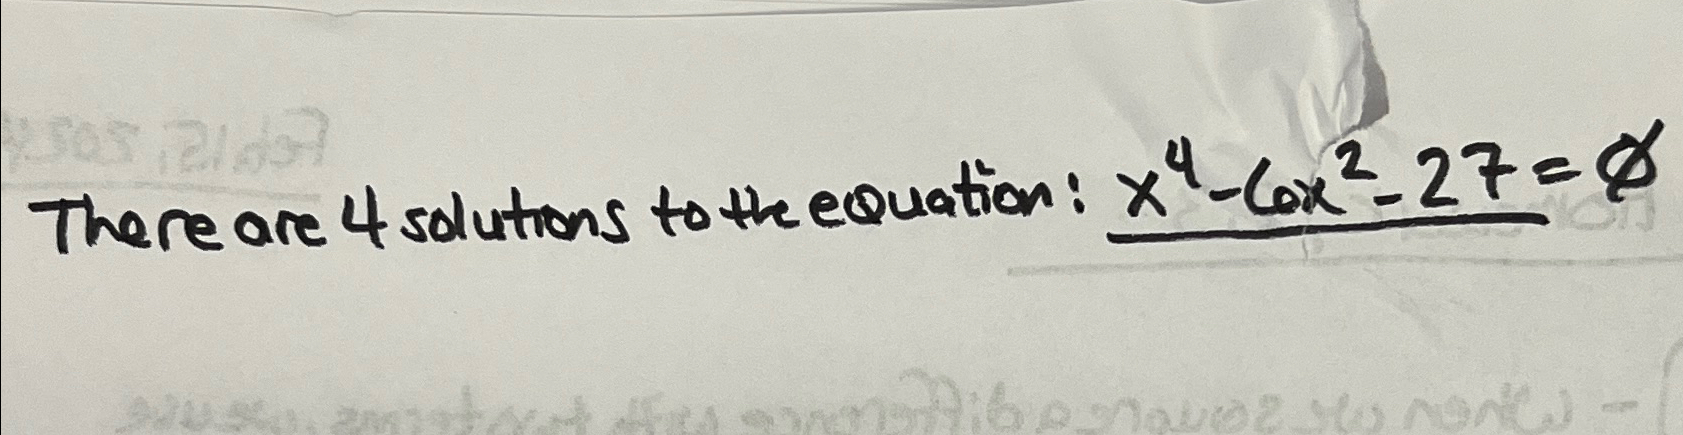 There are 4 solutions to the equation: x⁴-6x²-27=0